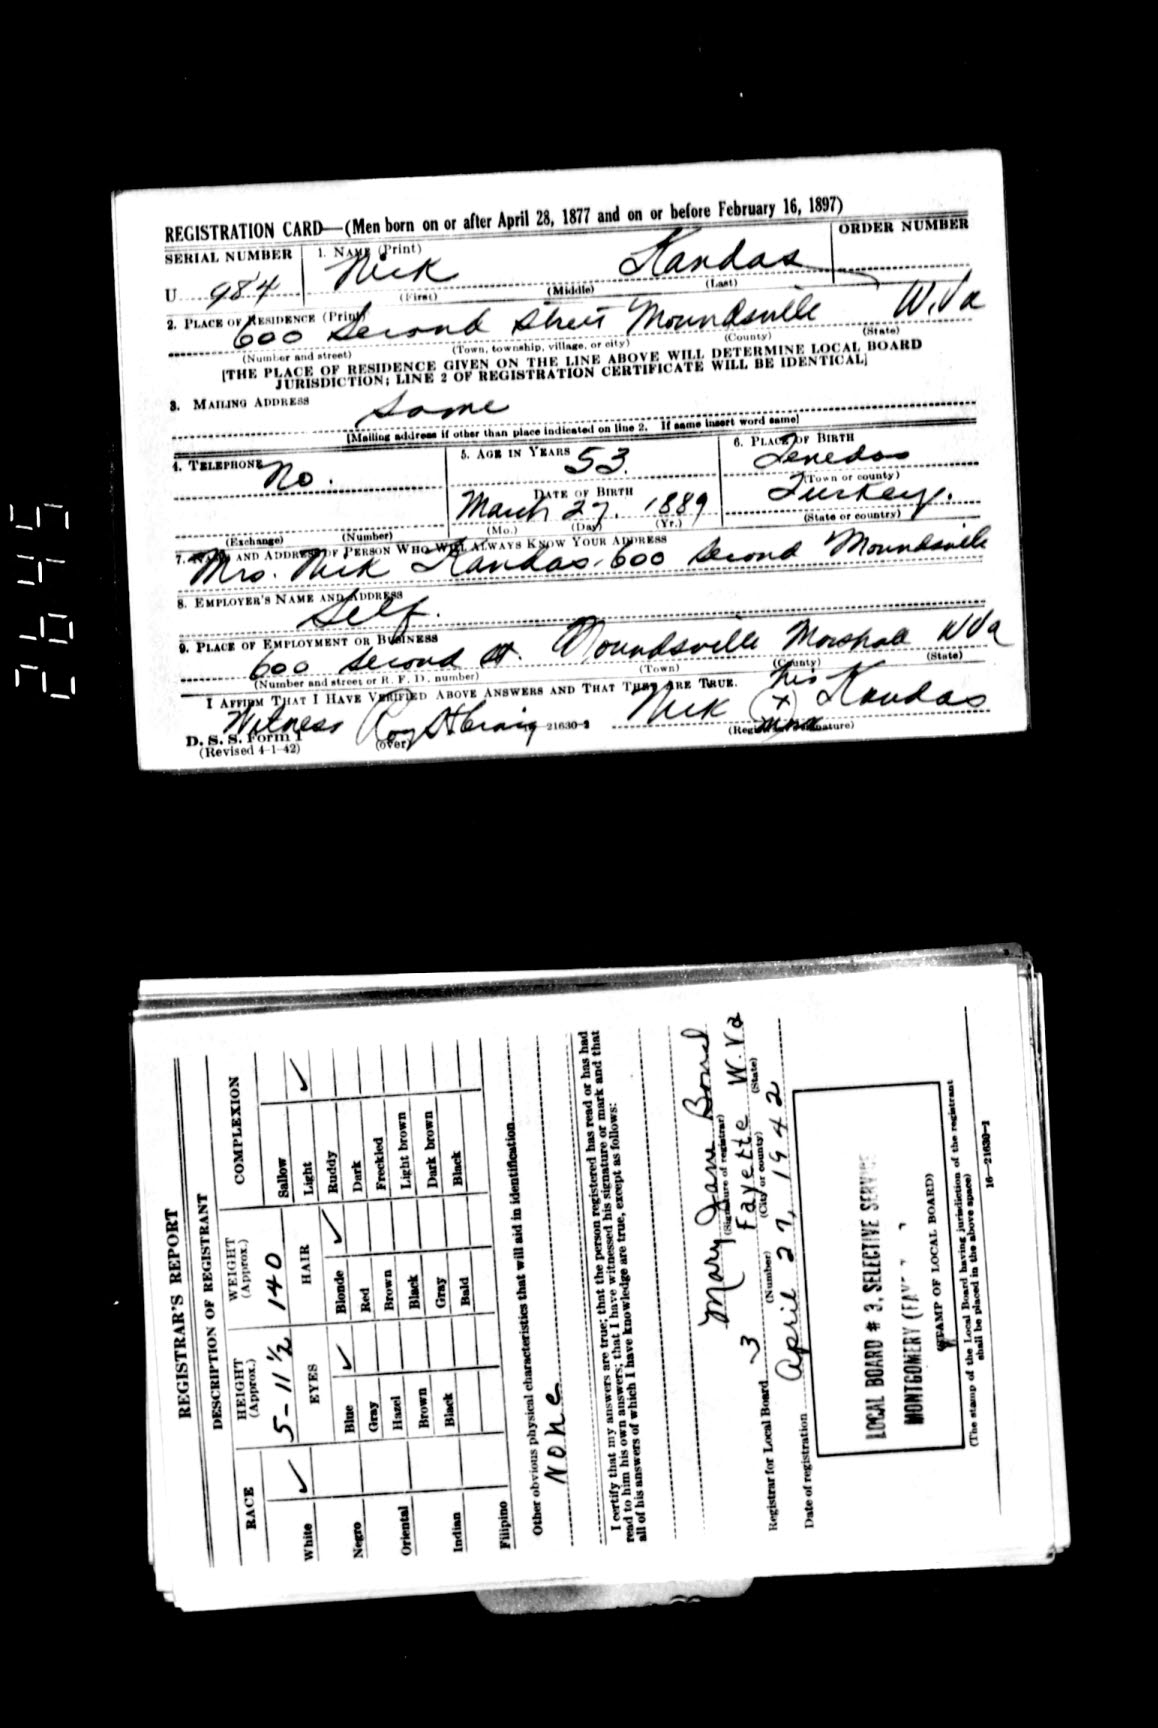 REGISTRATION CARD—(Men born on or after April 28, 1877 and on or before February 16, 1897)
SERIAL NUMBER 1. NAME (Print) ORDER NUMBER
U 984 Nick Kandas
(First) (Middle) (Last)
2. PLACE OF RESIDENCE (Print)
600 Second Street Moundsville W.Va
(Number and street) (Town, township, village, or city) (County) (State)
[THE PLACE OF RESIDENCE GIVEN ON THE LINE ABOVE WILL DETERMINE LOCAL BOARD
JURISDICTION; LINE 2 OF REGISTRATION CERTIFICATE WILL BE IDENTICAL]
3. MAILING ADDRESS
Same
[Mailing address if other than place indicated on line 2. If same insert word same]
4. TELEPHONE 5. AGE IN YEARS 6. PLACE OF BIRTH
No. 53 Tenedos
(Town or county)
DATE OF BIRTH Turkey.
March 27. 1889
(Mo.) (Day) (Yr.) (State or country)
(Exchange) (Number)
7. NAME AND ADDRESS OF PERSON WHO WILL ALWAYS KNOW YOUR ADDRESS
Mrs. Nick Kandas, 600 Second Moundsville
8. EMPLOYER'S NAME AND ADDRESS
Self.
9. PLACE OF EMPLOYMENT OR BUSINESS
600 Second St. Moundsville Marshall W Va
(Number and street or R. F. D. number) (Town) (County) (State)
I AFFIRM THAT I HAVE VERIFIED ABOVE ANSWERS AND THAT THEY ARE TRUE.
his
Witness Roy Craig Nick (x) Kandas
mark
D. S. S. Form 1 (over) 21630-1 (Registrant's signature)
(Revised 4-1-42)
2645
REGISTRAR'S REPORT
DESCRIPTION OF REGISTRANT
RACE HEIGHT (Approx.) WEIGHT (Approx.) COMPLEXION
5-11 ½ 140 Sallow
White ✓ EYES HAIR Light ✓
Blue ✓ Blonde ✓ Ruddy
Negro Gray Red Dark
Hazel Brown Freckled
Oriental Brown Black Light brown
Black Gray Dark brown
Indian Bald Black
Filipino
Other obvious physical characteristics that will aid in identification
None
I certify that my answers are true; that the person registered has read or has had
read to him his own answers; that I have witnessed his signature or mark and that
all of his answers of which I have knowledge are true, except as follows:
Mary Jane Bond
(Signature of registrar)
Registrar for Local Board 3 Fayette W.Va
(Number) (City or county) (State)
Date of registration April 27, 1942
LOCAL BOARD # 3, SELECTIVE SERVICE
MONTGOMERY
(STAMP OF LOCAL BOARD)
(The stamp of the Local Board having jurisdiction of the registrant
shall be placed in the above space)
16—21630-1